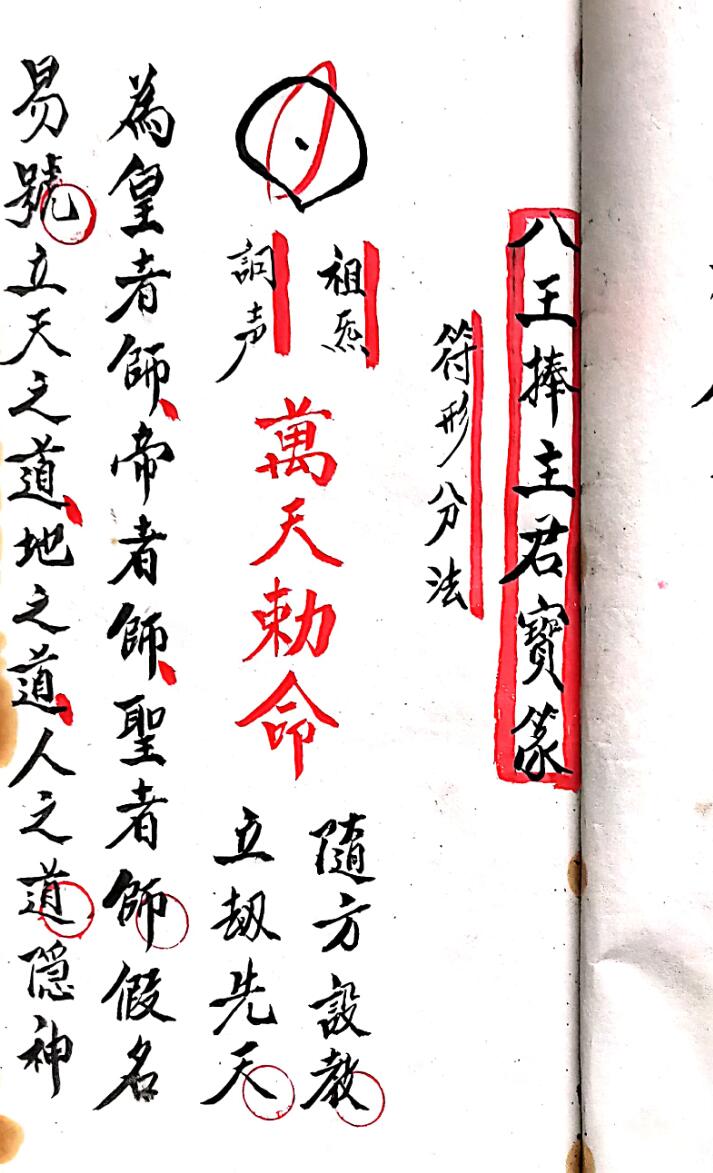 八王捧主君寶篆
符形分法
祖炁
訶声
萬天勅命
隨方設教
立劫先天
為皇者師帝者師聖者師假名
易號立天之道地之道人之道隐神